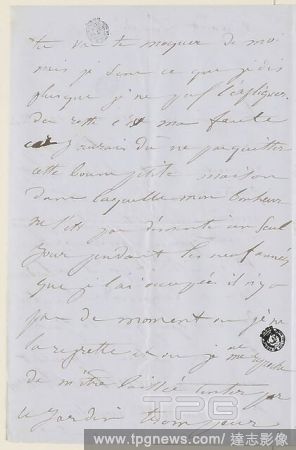 tu vas te moquer de moi
mais je sens ce que je dis
plus que je ne puis l'expliquer.
du reste c'est ma faute
car j'aurais dû ne pas quitter
cette bonne petite maison
dans laquelle mon bonheur
ne s'est pas démenti un seul
jour pendant les neuf années
que je l'ai occupée il n'y a
pas de moment où je ne
la regrette et où je ne me
de m'être laissée tenter par
le jardin
TPG
www.tpgnews.com / 達志影像